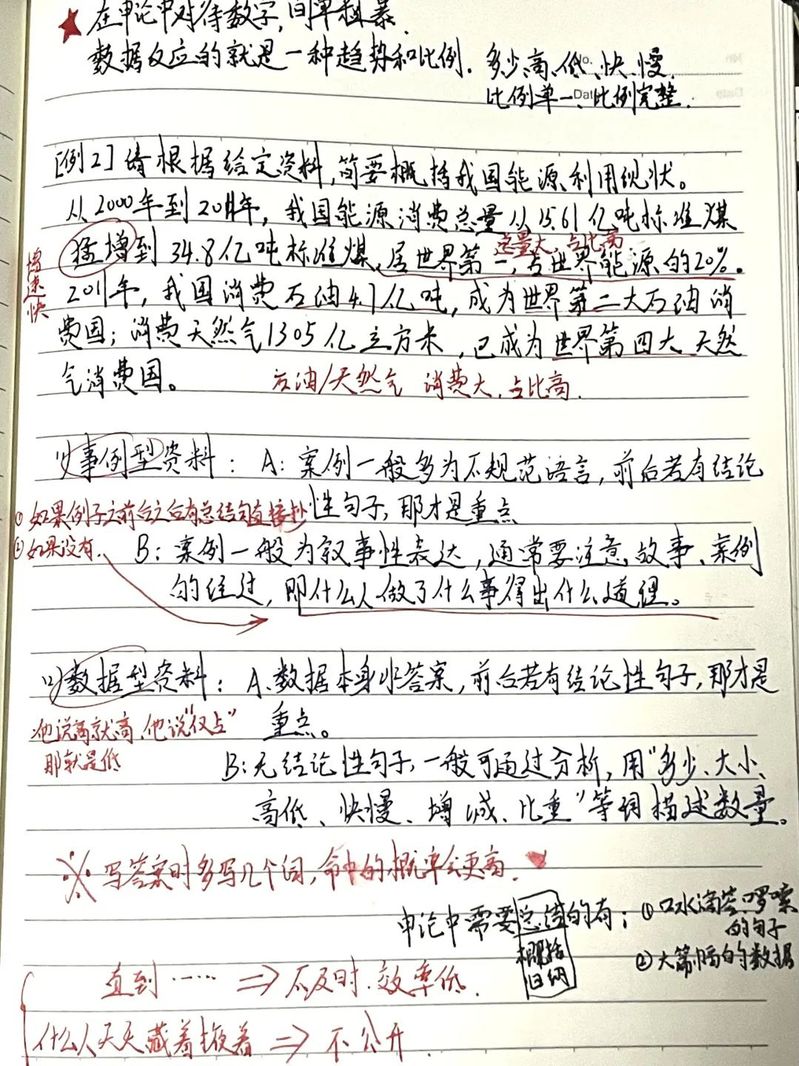 ★ 在申论中对待数字,简单粗暴.
数据反应的就是一种趋势和比例.
多少、高、低、快、慢.
比例单一、比例完整.
No.
Date
[例2] 请根据给定资料,简要概括我国能源利用现状。
从2000年到2011年,我国能源消费总量从15.61亿吨标准煤
猛增到34.8亿吨标准煤,居世界第一,占世界能源的20%.
增速快
总量大、占比高
2011年,我国消费石油4.7亿吨,成为世界第二大石油消
费国;消费天然气1305亿立方米,已成为世界第四大天然
气消费国。
石油/天然气 消费大、占比高.
1)事例型资料:A:案例一般多为不规范语言,前后若有结论
性句子,那才是重点
① 如果例子之前后之后有总结句直接抄
② 如果没有.
B:案例一般为叙事性表达,通常要注意故事、案例
的经过,即什么人做了什么事得出什么道理。
2)数据型资料:A.数据本身非答案,前后若有结论性句子,那才是
重点。
他说高就高,他说"仅占"
那就是低
B:无结论性句子,一般可通过分析,用"多少、大小、
高低、快慢、增减、比重"等词描述数量。
※ 写答案时多写几个词,命中的概率会更高.
申论中需要总结的有:①口水滴答啰嗦
的句子
概括
归纳
②大篇幅的数据
直到…… ⇒ 不及时、效率低.
什么人天天藏着掖着 ⇒ 不公开.